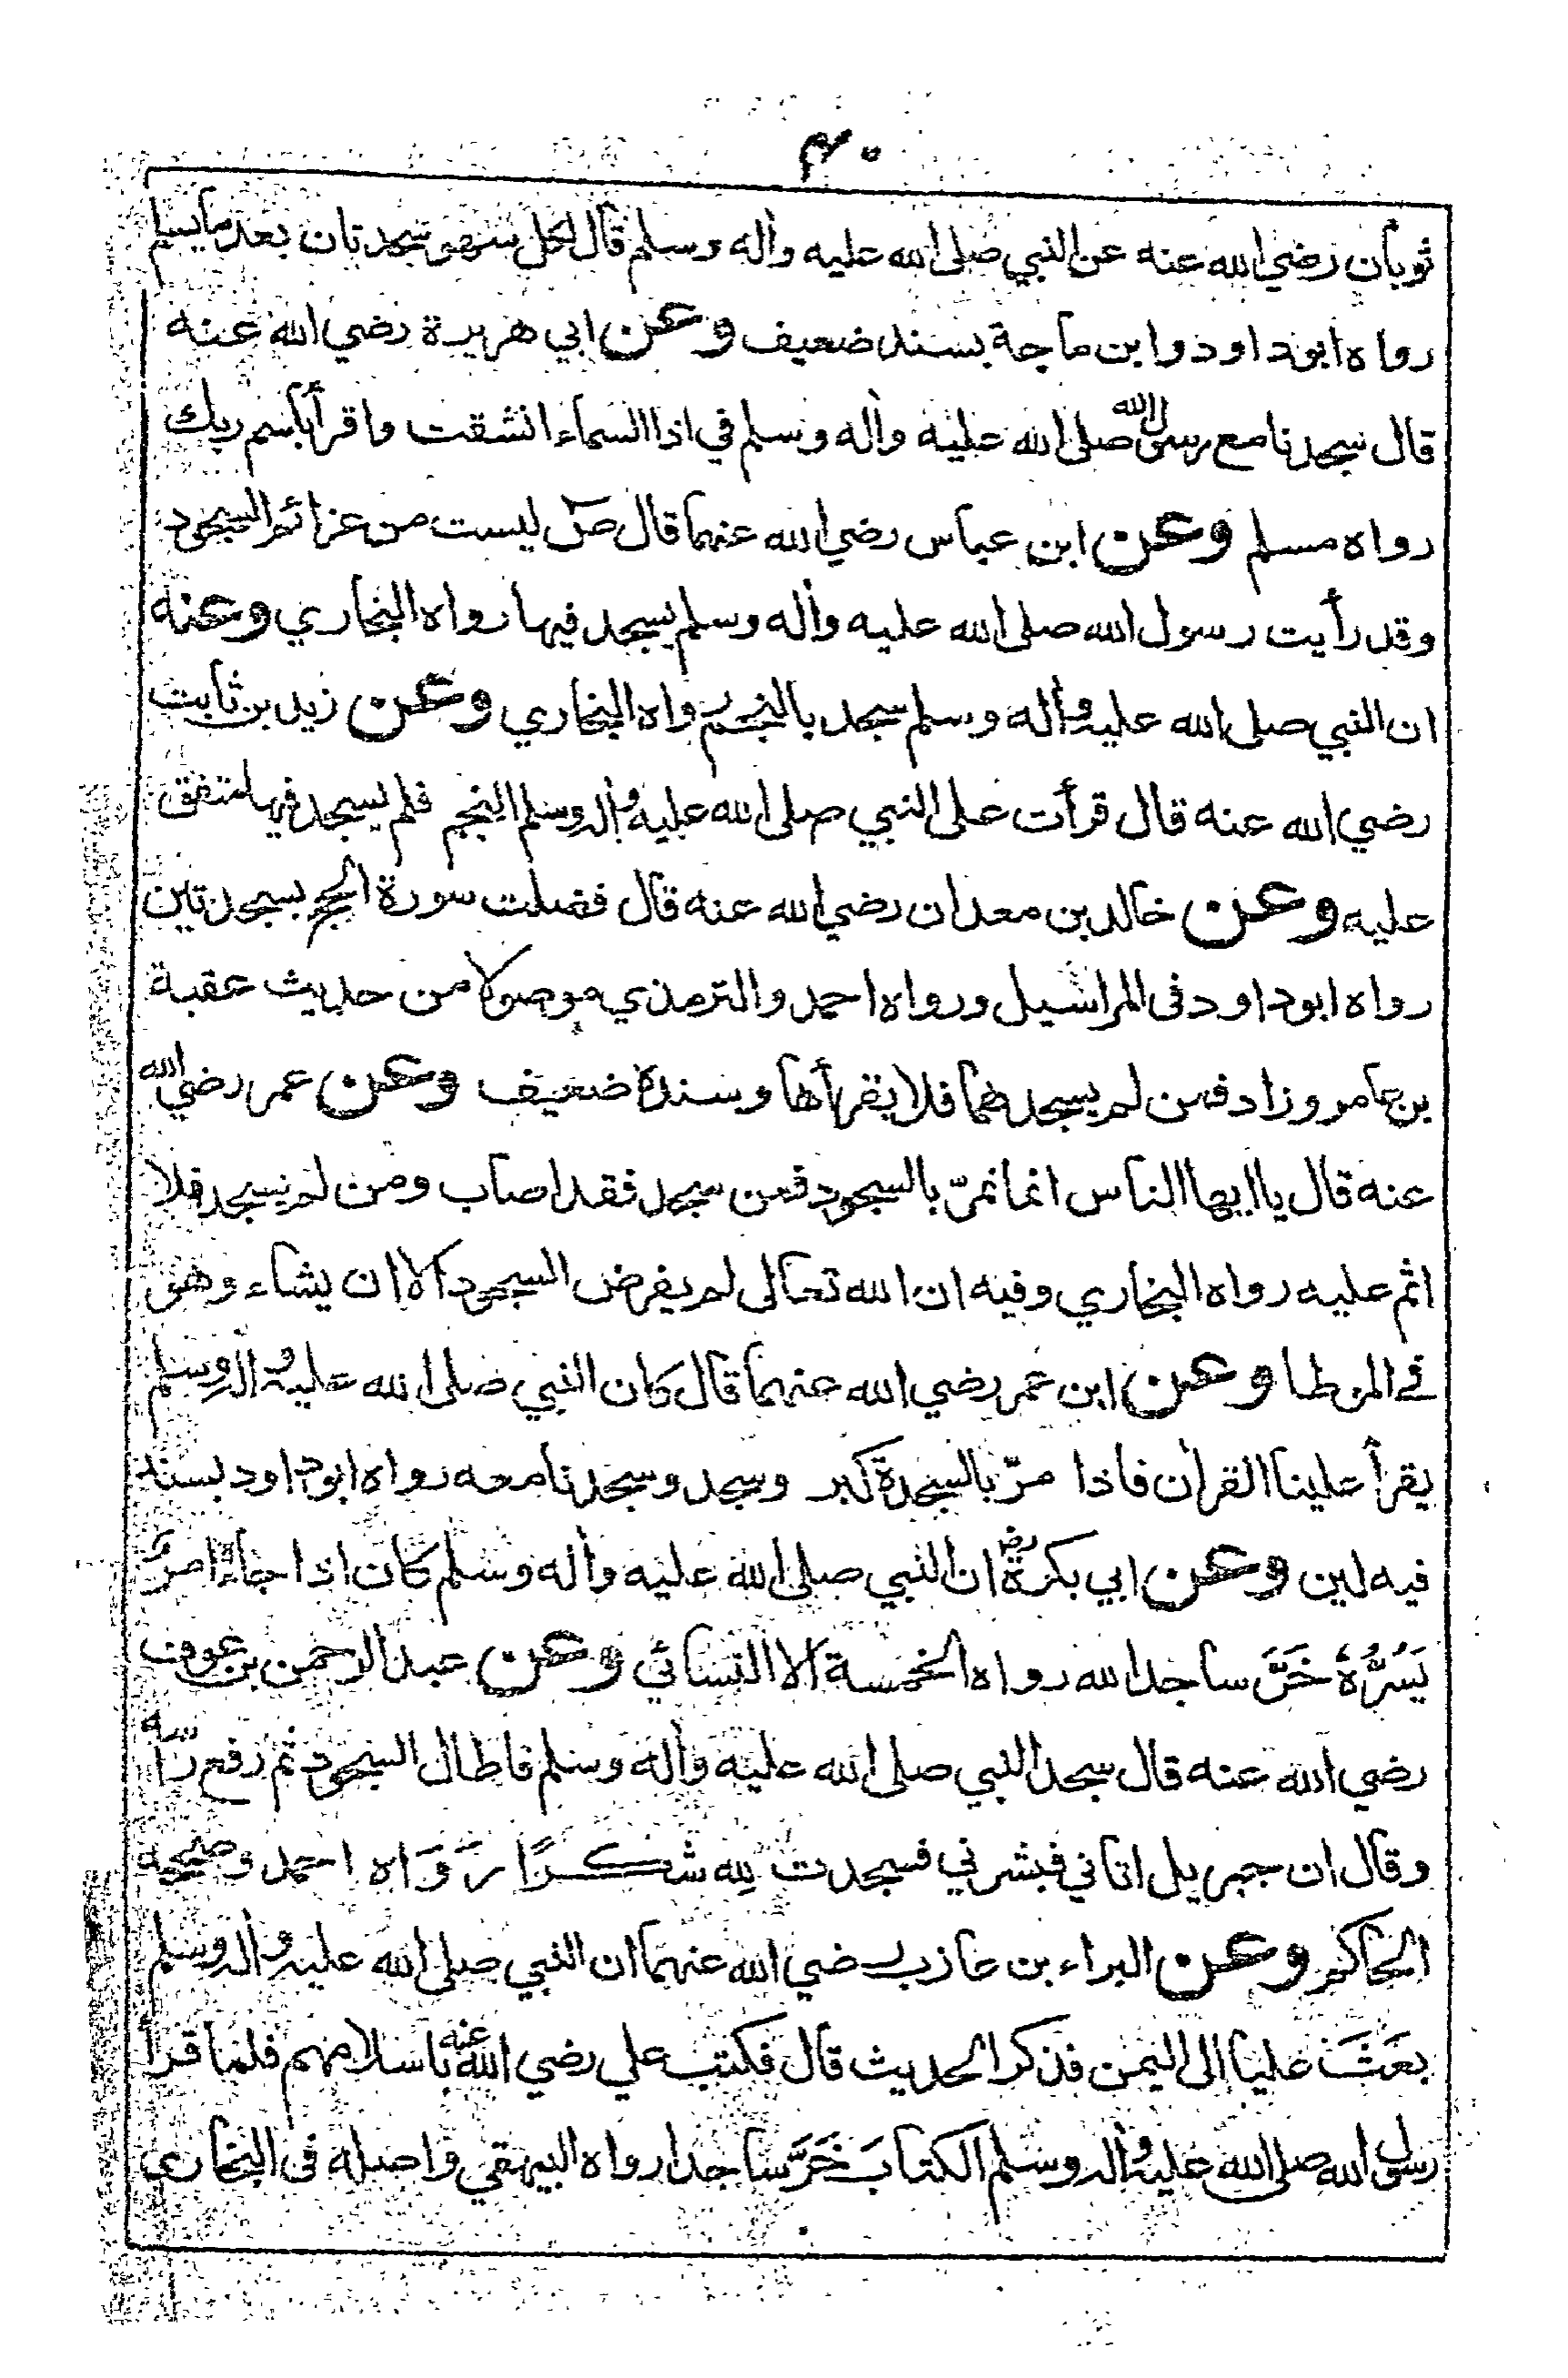 ٤٠
ثوبان رضي الله عنه عن النبي صلى الله عليه وأله وسلم قال لكل سهو سجدتان بعد ما يسلم
رواه ابوداود وابن ماجة بسند ضعيف وعن ابي هريرة رضي الله عنه
قال سجدنا مع رسول الله صلى الله عليه وأله وسلم في اذا السماء انشقت واقرأ باسم ربك
رواه مسلم وعن ابن عباس رضي الله عنهما قال صٓ ليست من عزائم السجود
وقد رأيت رسول الله صلى الله عليه وأله وسلم يسجد فيها رواه البخاري وعنه
ان النبي صلى الله عليه وأله وسلم سجد بالنجم رواه البخاري وعن زيد بن ثابت
رضي الله عنه قال قرأت على النبي صلى الله عليه وأله وسلم النجم فلم يسجد فيها متفق
عليه وعن خالد بن معدان رضي الله عنه قال فضلت سورة الحج بسجدتين
رواه ابوداود فى المراسيل ورواه احمد والترمذي موصولا من حديث عقبة
بن عامر وزاد فمن لم يسجدهما فلا يقرأها وسنده ضعيف وعن عمر رضي الله
عنه قال ياايها الناس انما نمرّ بالسجود فمن سجد فقد اصاب ومن لم يسجد فلا
اثم عليه رواه البخاري وفيه ان الله تعالى لم يفرض السجود الا ان يشاء وهو
في الموطا وعن ابن عمر رضي الله عنهما قال كان النبي صلى الله عليه وأله وسلم
يقرأ علينا القرأن فاذا مرّ بالسجدة كبر وسجد وسجدنا معه رواه ابوداود بسند
فيه لين وعن ابي بكرة رض ان النبي صلى الله عليه وأله وسلم كان اذا جاءه امرٌ
يَسُرُّهُ خَرَّ ساجدا لله رواه الخمسة الا النسائي وعن عبد الرحمن بن عوف
رضي الله عنه قال سجد النبي صلى الله عليه وأله وسلم فاطال السجود ثم رفع رأسه
وقال ان جبريل اتاني فبشرني فسجدت لله شكرًا رَوَاه احمد وصححه
الحاكم وعن البراء بن عازب رضي الله عنهما ان النبي صلى الله عليه وأله وسلم
بعَثَ عليا الى اليمن فذكر الحديث قال فكتب علي رضي الله عنه باسلامهم فلما قرأ
رسول الله صلى الله عليه وأله وسلم الكتابَ خَرَّ ساجدا رواه البيهقي واصله فى البخاري